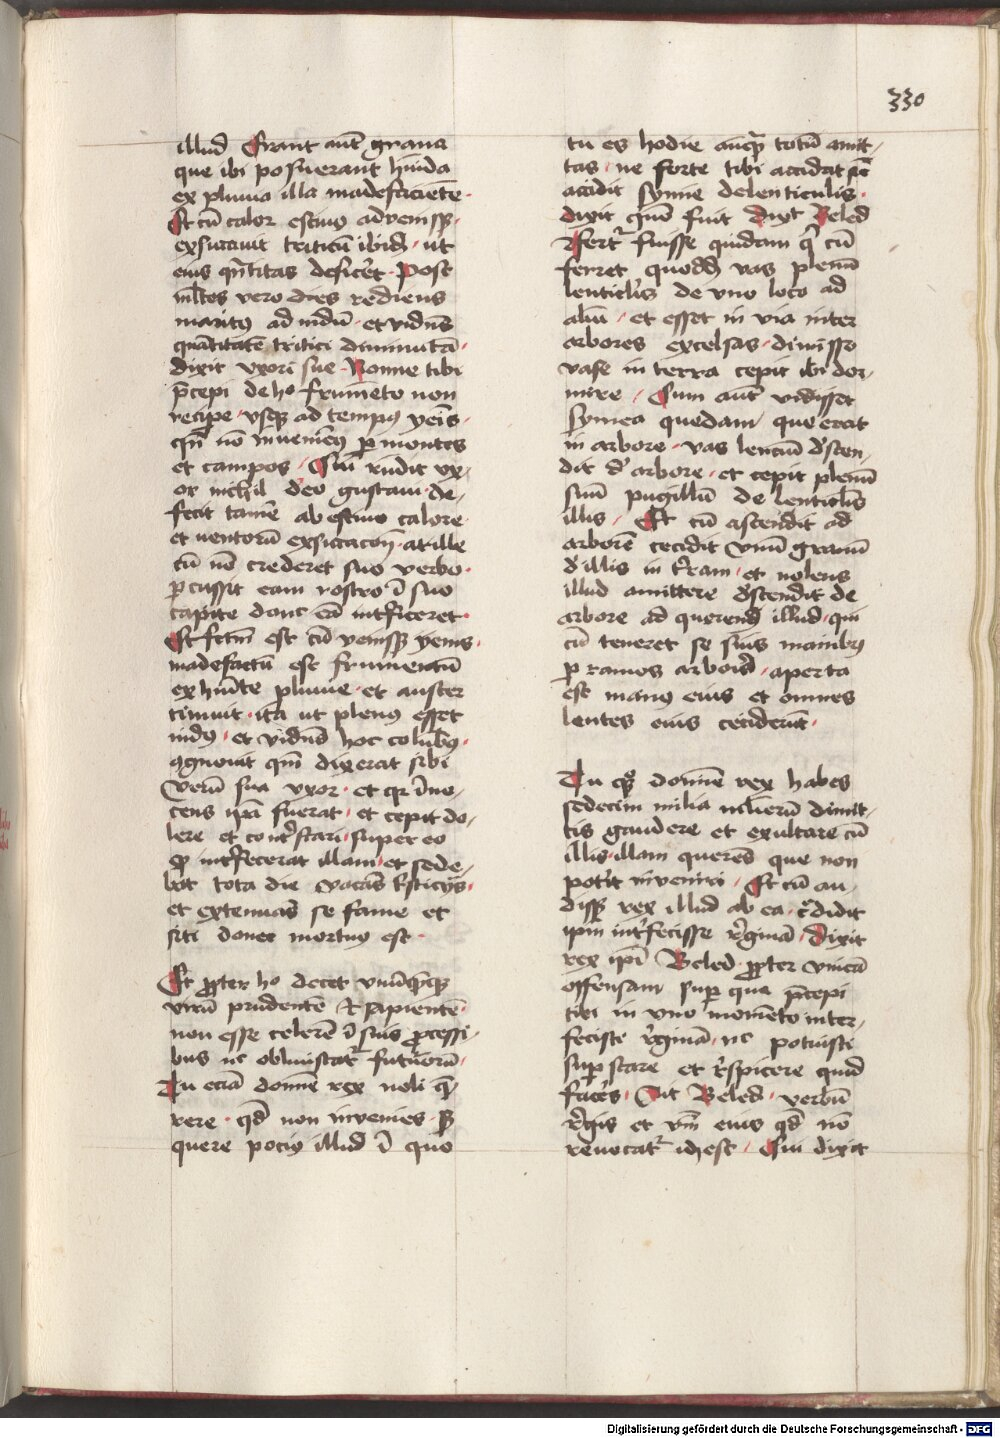 330
illud Erant aut̄ grana
que ibi posuerant hṁida
ex pluuia illa madefaciētē
Et cū calor estiuꝰ advenissꝫ
exsiccauit triticū ibidē ut
eius qn̄titas deficēt Post
ml̄tos vero dies rediens
maritꝰ ad nidū et vidēs
quātitatē tritici diminutā
dixit vxori sue Nonne tibi
p̄cepi de hͦ frumēto non
recipe vsqꝫ ad tempꝰ yeīs
qn̄ nō inueniemꝰ ꝑ montes
et campos Cui rn̄dit vx-
or nichil deo gustaui de-
fecit tamē ab estiuo calore
et uentorū exsiccacōe at ille
cū nō crederet suo verbo
ꝑcussit eam rostro ī suo
capite donec eā int̄ficeret
Et fctm̄ est cū venissꝫ yems
madefactū est frumentū
ex hṁiditate pluuie et auster
timuit ita ut plenꝰ esset
nidꝰ et vidēs hoc colūbꝰ
ꝯgnouit qm̄ dixerat sibi
verū sua vxor et qꝛ īno-
cens ip̄a fuerat et cepit do-
lere et cont̄stari super eo
qꝫ int̄fecerat illam et sede-
bat tota die
et extenuās se fame et
siti donec mortuꝰ est
Et ꝓpter hͦ decet vnūqꝫqꝫ
virū prudentē et sapientē
non esse celerē ī suis ꝓcessi-
bus nc obliuiscat᷑ futurorū
Tu eciā domīe rex noli q̄-
rere qd̄ non invenies sꝫ
quere pociꝰ illud ī quo
tu es hodie anteqꝫ totū amit-
tas ne forte tibi accidat sic̄
accidit symie de lenticulis
dixit quō fuit dixit Beled
Fert᷑ fuisse quidam q̄ cū
ferret quoddā vas plenū
lenticl̄is de vno loco ad
aliū et esset in via inter
arbores excelsas dimisso
vase in terra cepit ibi dor-
mire Cum aut̄ vidisset
symea quedam que erat
in arbore vas lenciū dēscen-
dit d̄ arbore et cepit plenū
suū pugillū de lenticl̄is
illis Et cū ascendit ad
arborē cecidit vnū granū
d̄ illis in t̄ram et nolens
illud amittere dēscendit de
arbore ad querendū illud qui
cū teneret se suis manibꝰ
ꝑ ramos arboris aperta
est manꝰ eius et omnes
lentes eius ceciderūt
Tu qꝫ domīe rex habes
sedecim milia mulierū dimit-
tis gaudere et exultare cū
illis illam querēs que non
potit inveniri Et cū au-
dissꝫ rex illud ab eo c̄didit
ipm̄ int̄fecisse r̄ginā Dixit
rex ip̄i Beled ꝓpter vnicā
offensam suꝑ qua p̄cepi
tibi in vno momēto inter-
feciste r̄ginā nc potuisti
suꝑstare et r̄spicere quid
facēs Ait Beled verbū
r̄gis et vnū eius qd̄ nō
reuocat᷑ id est Cui dixit
Digitalisierung gefördert durch die Deutsche Forschungsgemeinschaft - DFG